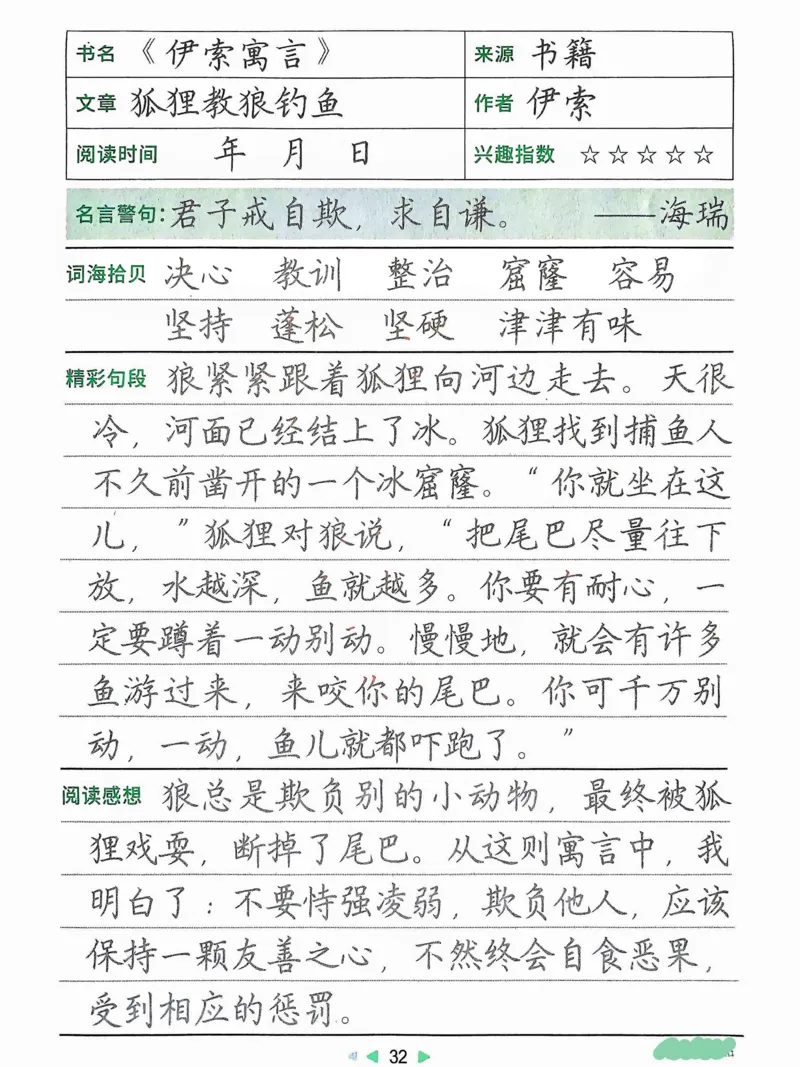 书名 《伊索寓言》 来源 书籍
文章 狐狸教狼钓鱼 作者 伊索
阅读时间 年 月 日 兴趣指数 ☆☆☆☆☆
名言警句：君子戒自欺，求自谦。 ——海瑞
词海拾贝 决心 教训 整治 窟窿 容易
坚持 蓬松 坚硬 津津有味
精彩句段 狼紧紧跟着狐狸向河边走去。天很
冷，河面已经结上了冰。狐狸找到捕鱼人
不久前凿开的一个冰窟窿。“你就坐在这
儿，”狐狸对狼说，“把尾巴尽量往下
放，水越深，鱼就越多。你要有耐心，一
定要蹲着一动别动。慢慢地，就会有许多
鱼游过来，来咬你的尾巴。你可千万别
动，一动，鱼儿就都吓跑了。”
阅读感想 狼总是欺负别的小动物，最终被狐
狸戏耍，断掉了尾巴。从这则寓言中，我
明白了：不要恃强凌弱，欺负他人，应该
保持一颗友善之心，不然终会自食恶果，
受到相应的惩罚。
32